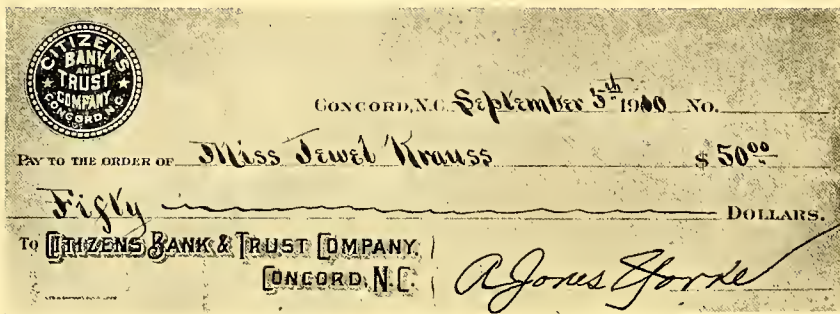 CITIZENS
BANK
AND
TRUST
COMPANY
CONCORD, N.C.
CONCORD, N.C. September 5th 1940 No.
PAY TO THE ORDER OF Miss Jewel Krauss $ 50.00
Fifty DOLLARS.
TO CITIZENS BANK & TRUST COMPANY,
CONCORD, N.C.
A Jones Yorke